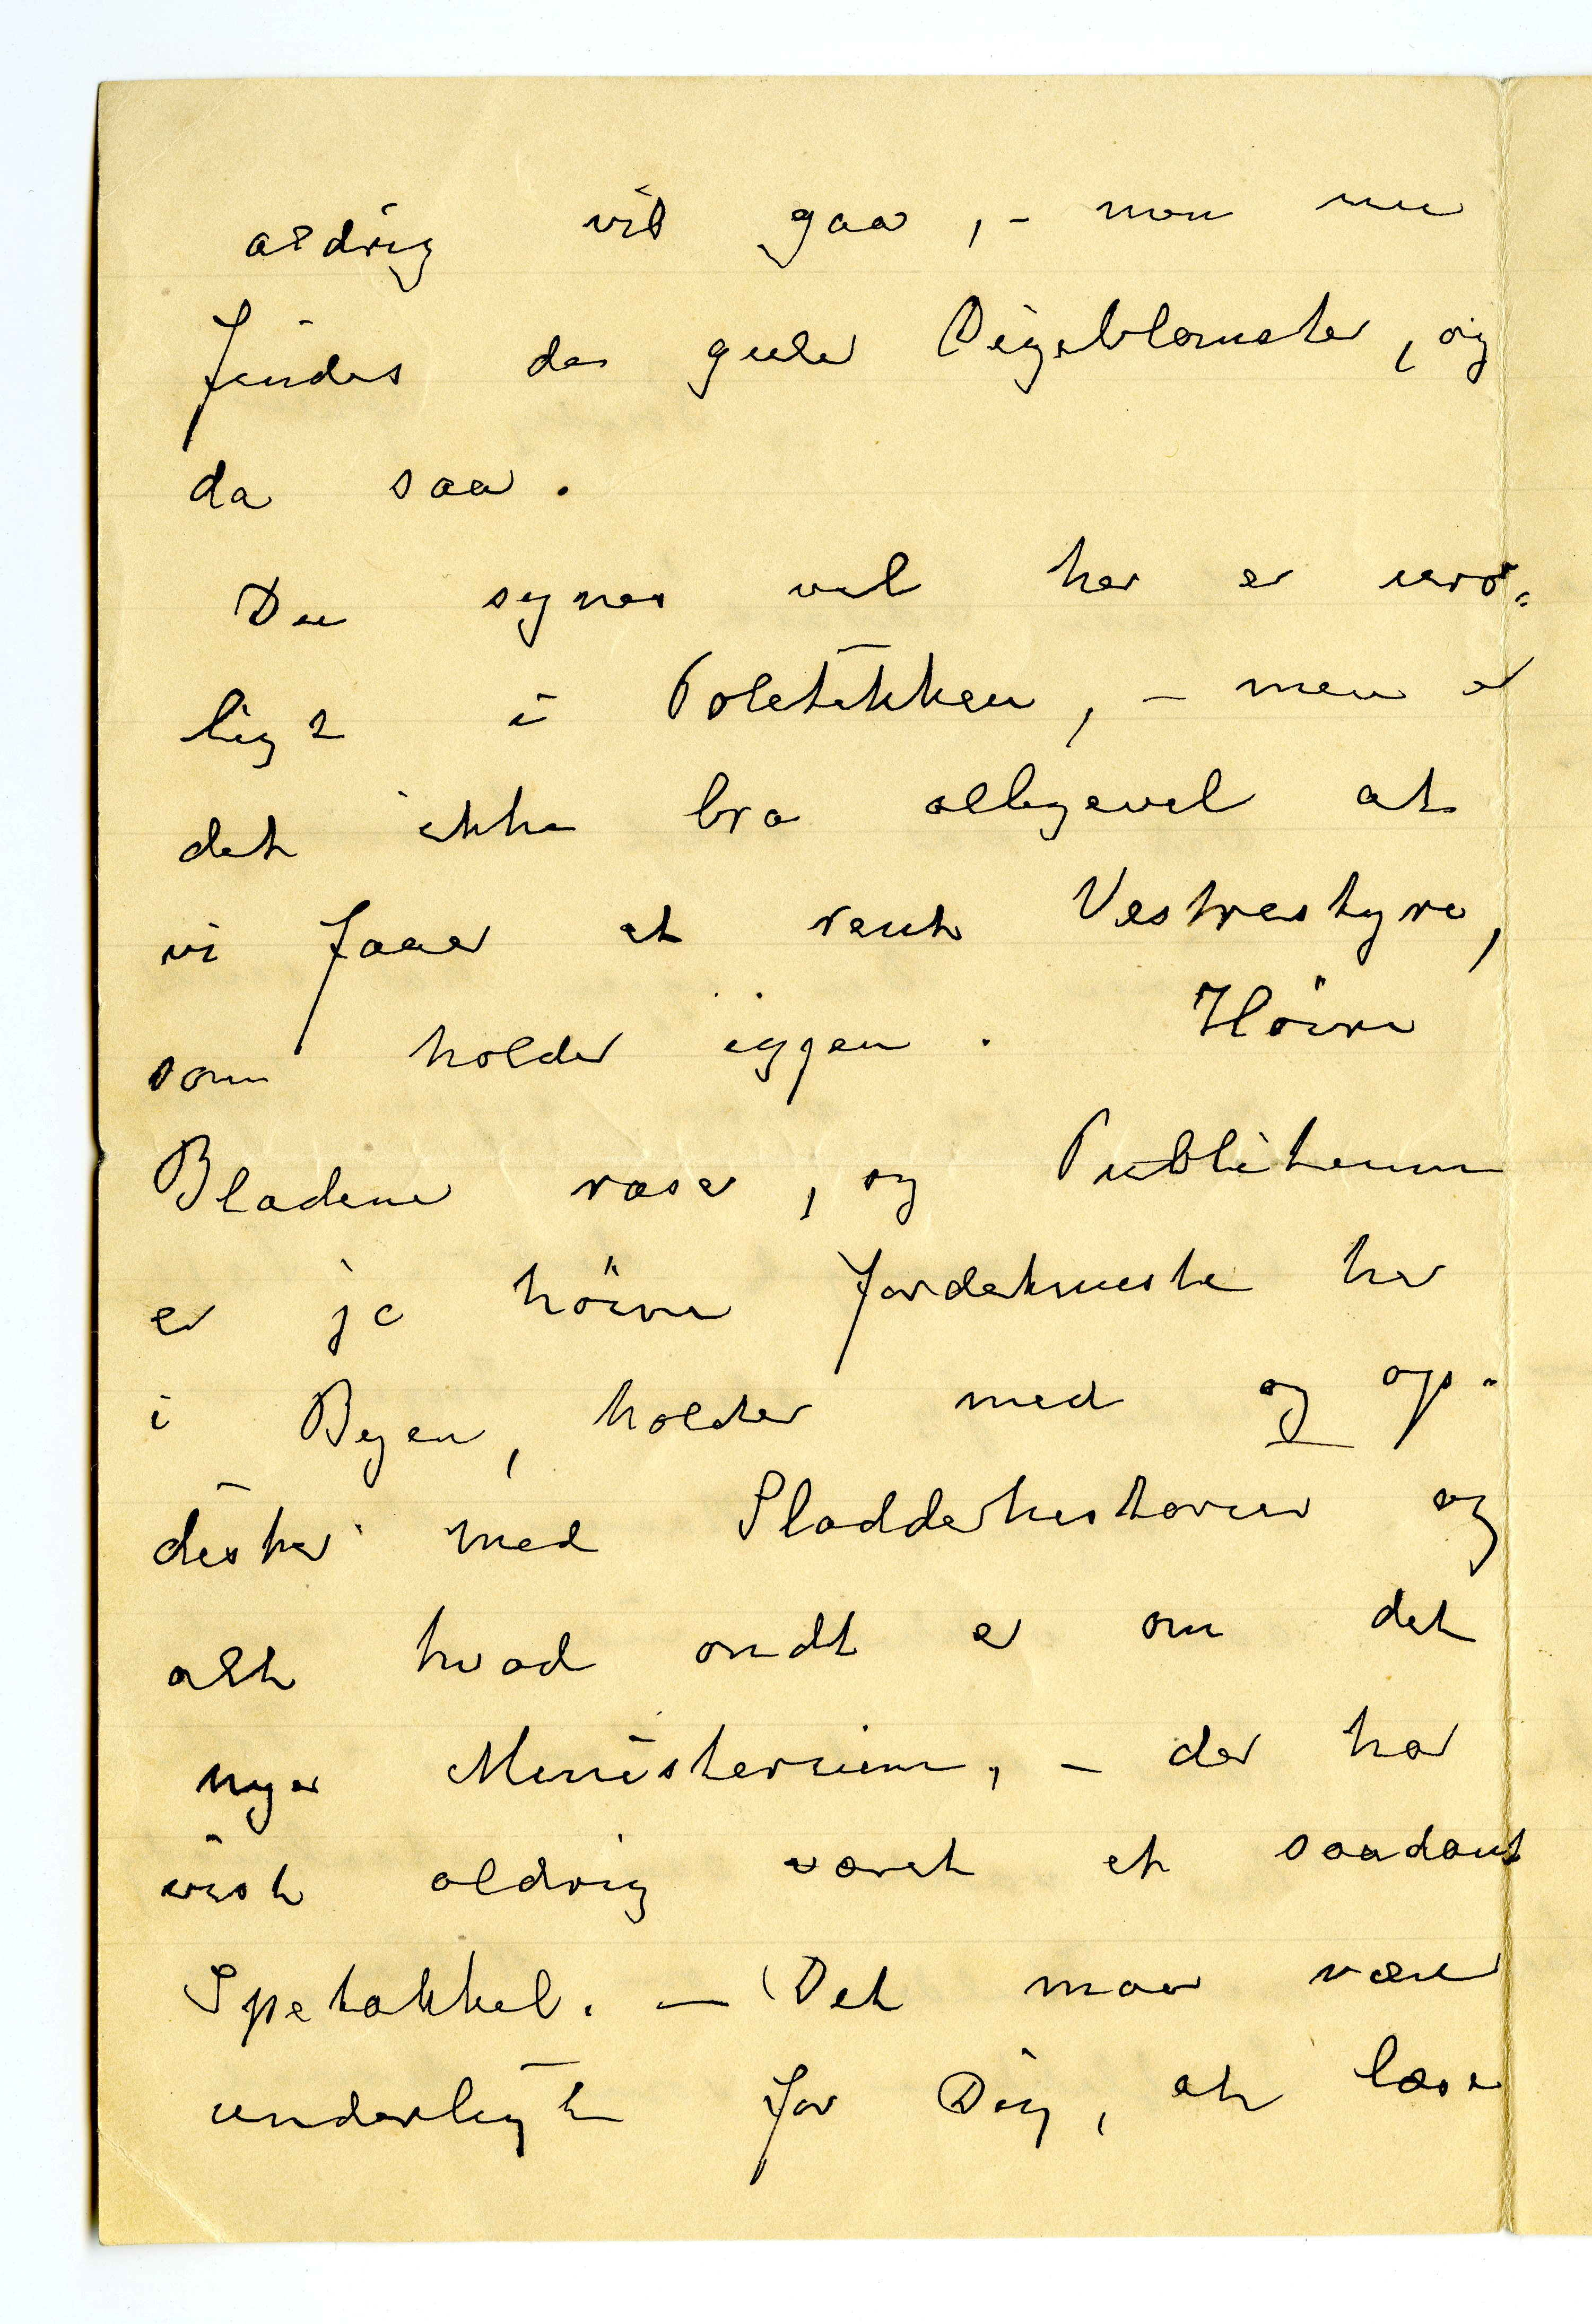 aldrig vil gaa, – men nu
findes der gule Pigeblomster, og
da saa.
Du synes vel her er uro-
ligt i Politikken, – men er
det ikke bra alligevel at
vi faaer et rent Venstrestyre,
som holder iggen. Höire
Bladene raser, og Publikum
er jo höire fordetmeste her
i Byen, holder med og op-
disker med Sladderhistorier og
alt hvad ondt er om det
nye Ministerium, – der har
vist aldrig været et saadant
Spetakkel. – Det maa være
underligt for Dig, at læse